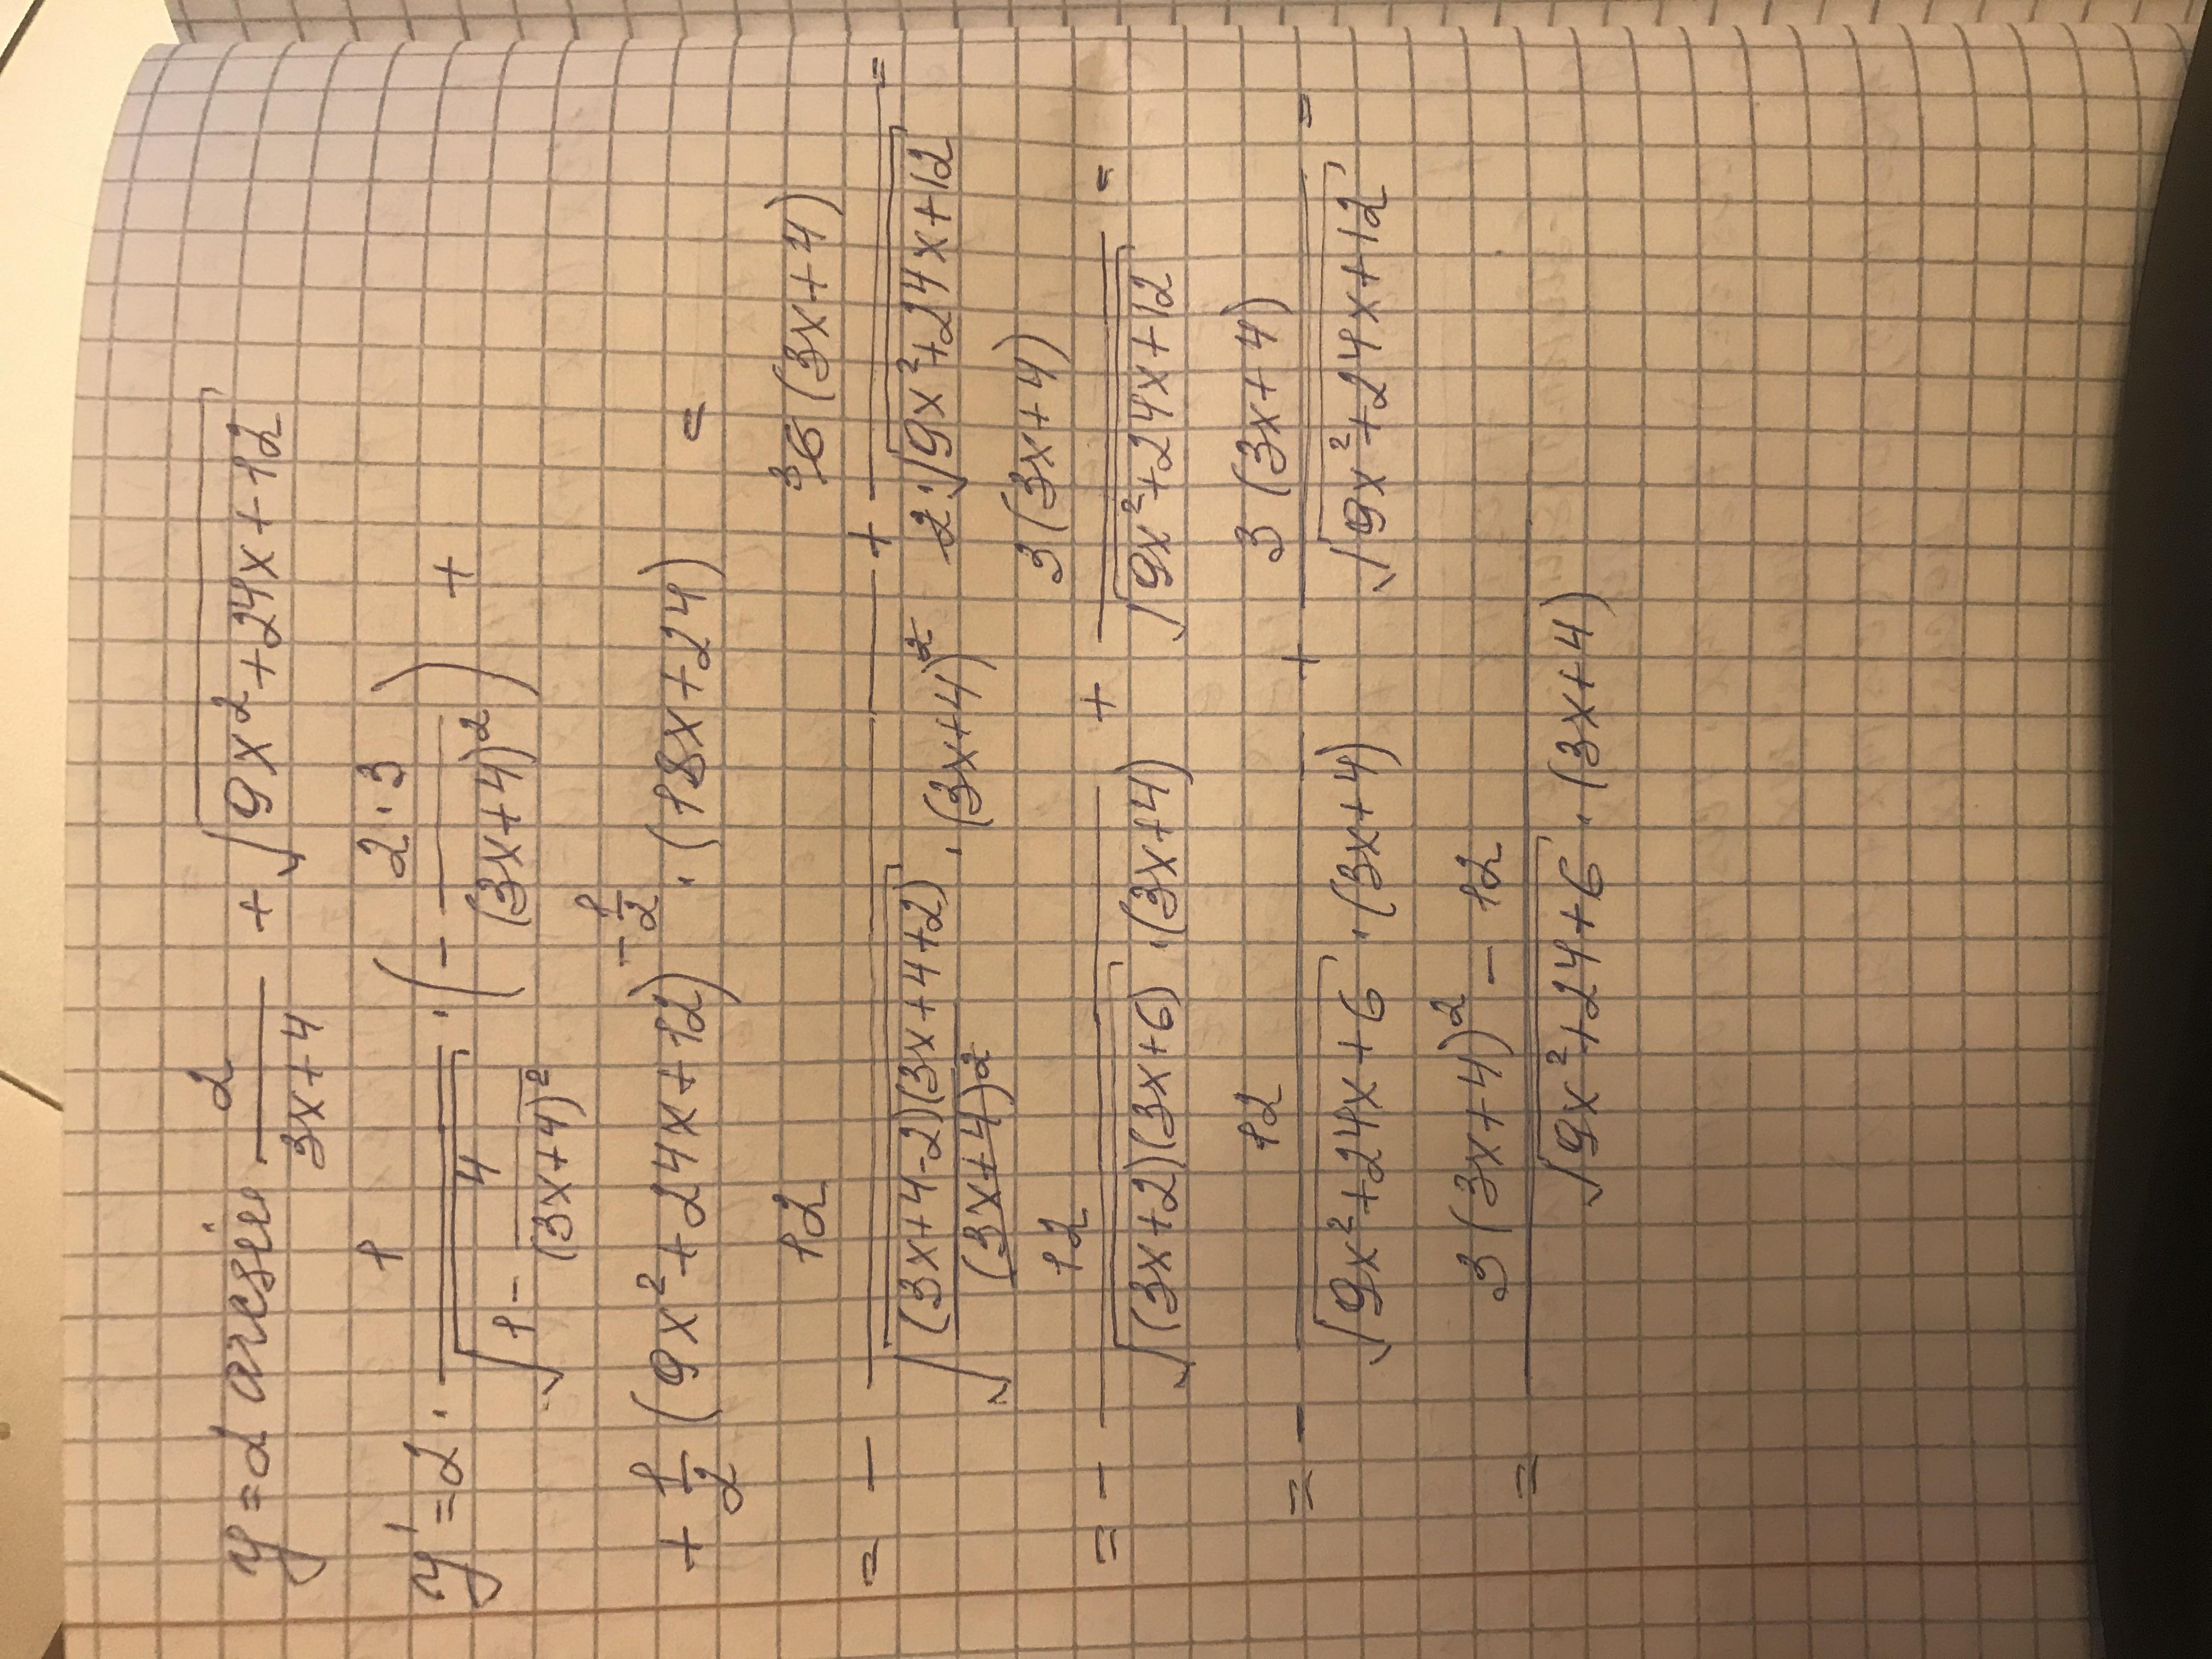 y = 2 arcsin 2/(3x+4) + √(9x²+24x+12)
y' = 2 · 1/√(1 - 4/(3x+4)²) · (- 2·3/(3x+4)²) +
+ 1/2 (9x²+24x+12)^(-1/2) · (18x+24) =
= - 12/(√((3x+4-2)(3x+4+2)/(3x+4)²) · (3x+4)²) + 6³(3x+4)/(2·√(9x²+24x+12)) =
= - 12/(√((3x+2)(3x+6)) · (3x+4)) + 3(3x+4)/√(9x²+24x+12) =
= - 12/(√(9x²+24x+6) · (3x+4)) + 3(3x+4)/√(9x²+24x+12) =
= (3(3x+4)² - 12)/(√(9x²+24+6) · (3x+4))